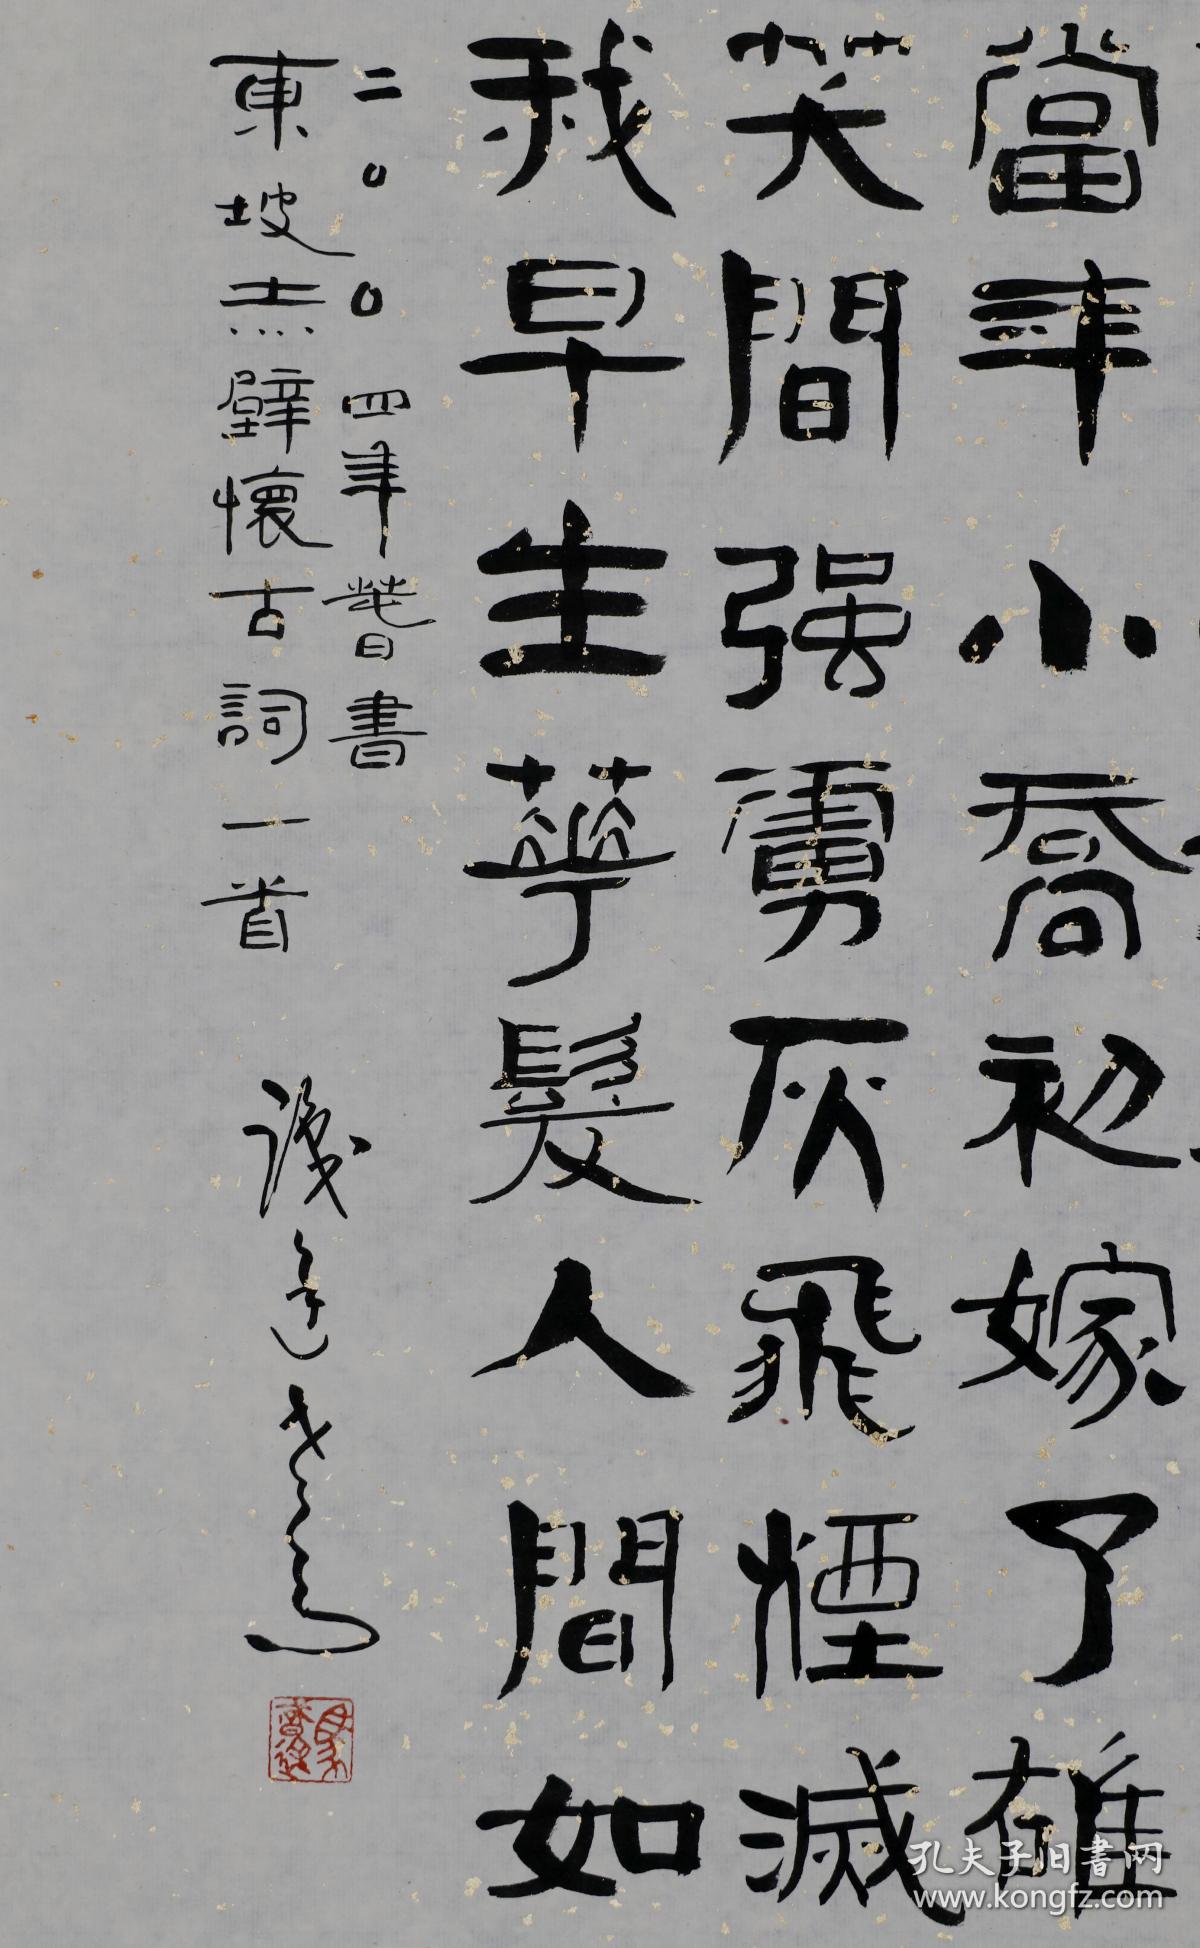 當年小喬初嫁了雄
笑間强虜灰飛煙滅
我早生華髮人間如
二〇〇四年春日書
東坡赤壁懷古詞一首
孔夫子旧書网
www.kongfz.com